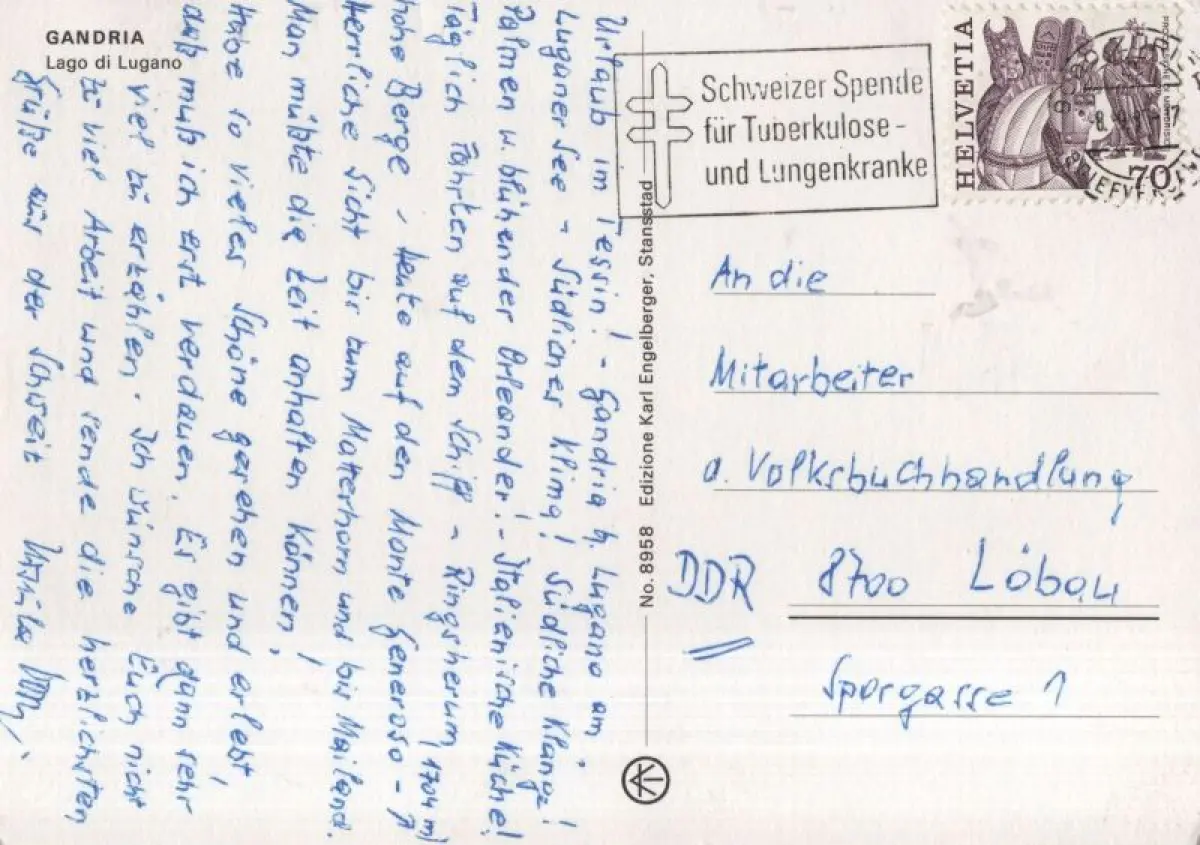 GANDRIA
Lago di Lugano
Urlaub im Tessin! - Gandria b. Lugano am
Luganer See - Südlicher Klima! Südliche Klänge!
Palmen u. blühender Orleander! - Italienische Küche!
Täglich Fahrten auf dem Schiff - Ringsherum
hohe Berge, heute auf den Monte Generoso - 1704 m!
Herrliche Sicht bis zum Matterhorn und bis Mailand.
Man müßte die Zeit anhalten können!
Habe so vieles Schöne gesehen und erlebt,
daß muß ich erst verdauen. Es gibt dann sehr
viel zu erzählen. Ich wünsche Euch nicht
zu viel Arbeit und sende die herzlichsten
Grüße aus der Schweiz
No. 8958 Edizione Karl Engelberger, Stansstad
Schweizer Spende
für Tuberkulose-
und Lungenkranke
HELVETIA
70
An die
Mitarbeiter
d. Volksbuchhandlung
DDR 8700 Löbau
Sporgasse 1